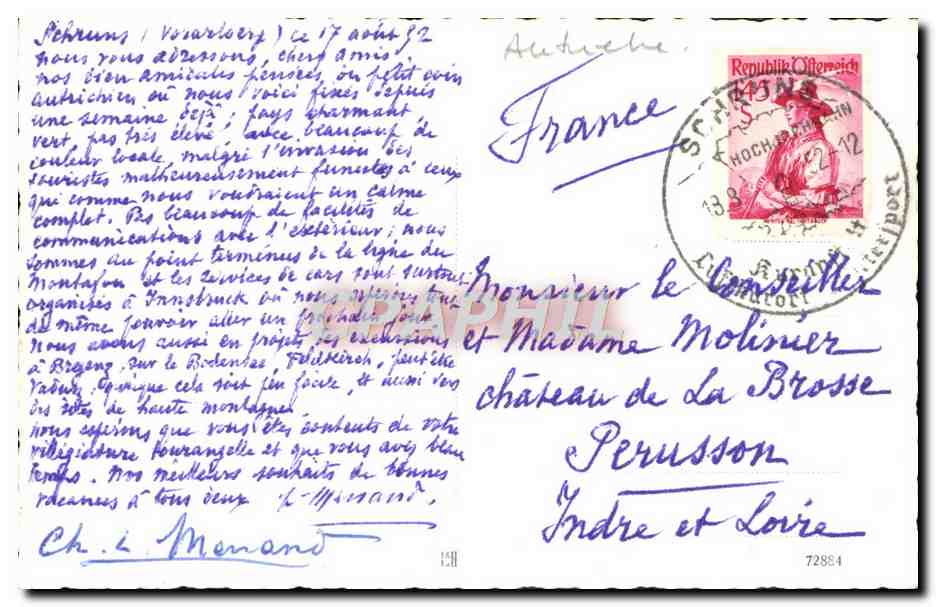 Schruns (Vorarlberg) ce 17 août 52
nous vous adressons, chers amis,
nos bien amicales pensées, du petit coin
autrichien où nous voici fixés depuis
une semaine déjà; pays charmant,
vert, pas très élevé, avec beaucoup de
couleur locale, malgré l'invasion des
touristes malheureusement funestes à ceux
qui comme nous voudraient un calme
complet. Pas beaucoup de facilités de
communications avec l'extérieur; nous
sommes au point terminus de la ligne du
Montafon et les services de cars sont surtout
organisés à Innsbruck où nous espérons tout
de même pouvoir aller un prochain jour.
Nous avons aussi en projets des excursions
à Bregenz, sur le Bodensee, Feldkirch, peut-être
Vaduz, quoique cela soit peu facile, et aussi vers
les sites de haute montagne.
nous espérons que vous êtes contents de votre
villégiature tourangelle et que vous avez beau
temps. Nos meilleurs souhaits de bonnes
vacances à tous deux
Ch. L. Menand
Autriche.
France
Republik Österreich
1.45 S
SCHRUNS
HOCHJOCHBAHN
18.8 52-12
Kurort
Luftkurort
Monsieur le Conseiller
et Madame Molinier
château de La Brosse
Perusson
Indre et Loire
CPAPHIL
72884